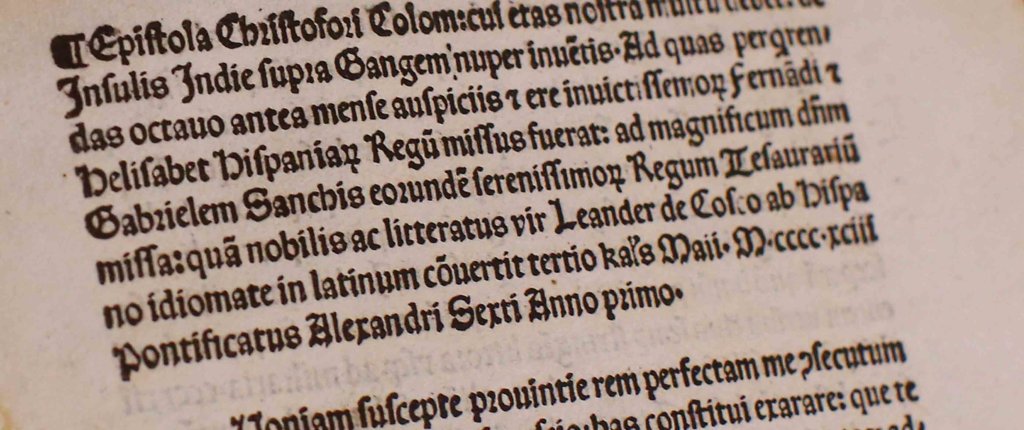 ¶Epiſtola Chriſtofori Colom: cui etas noſtra multū debet: de
Inſulis Indie ſupra Gangem nuper inuētis. Ad quas perqren⸗
das octauo antea menſe auſpiciis ⁊ ere inuictiſſemoꝝ Fernādi ⁊
Helisabet Hiſpaniaꝝ Regū miſſus fuerat: ad magnificum dñm
Gabrielem Sanchis eorundē ſereniſſimoꝝ Regum Teſaurariū
miſſa: quā nobilis ac litteratus vir Leander de Coſco ab Hiſpa
no idiomate in latinum cōuertit tertio kaƚs Maii. M.cccc.xciii
Pontificatus Alexandri Sexti Anno primo.
Uoniam ſuſcepte prouintie rem perfectam me ꝯſecutum
has conſtitui exarare: que te